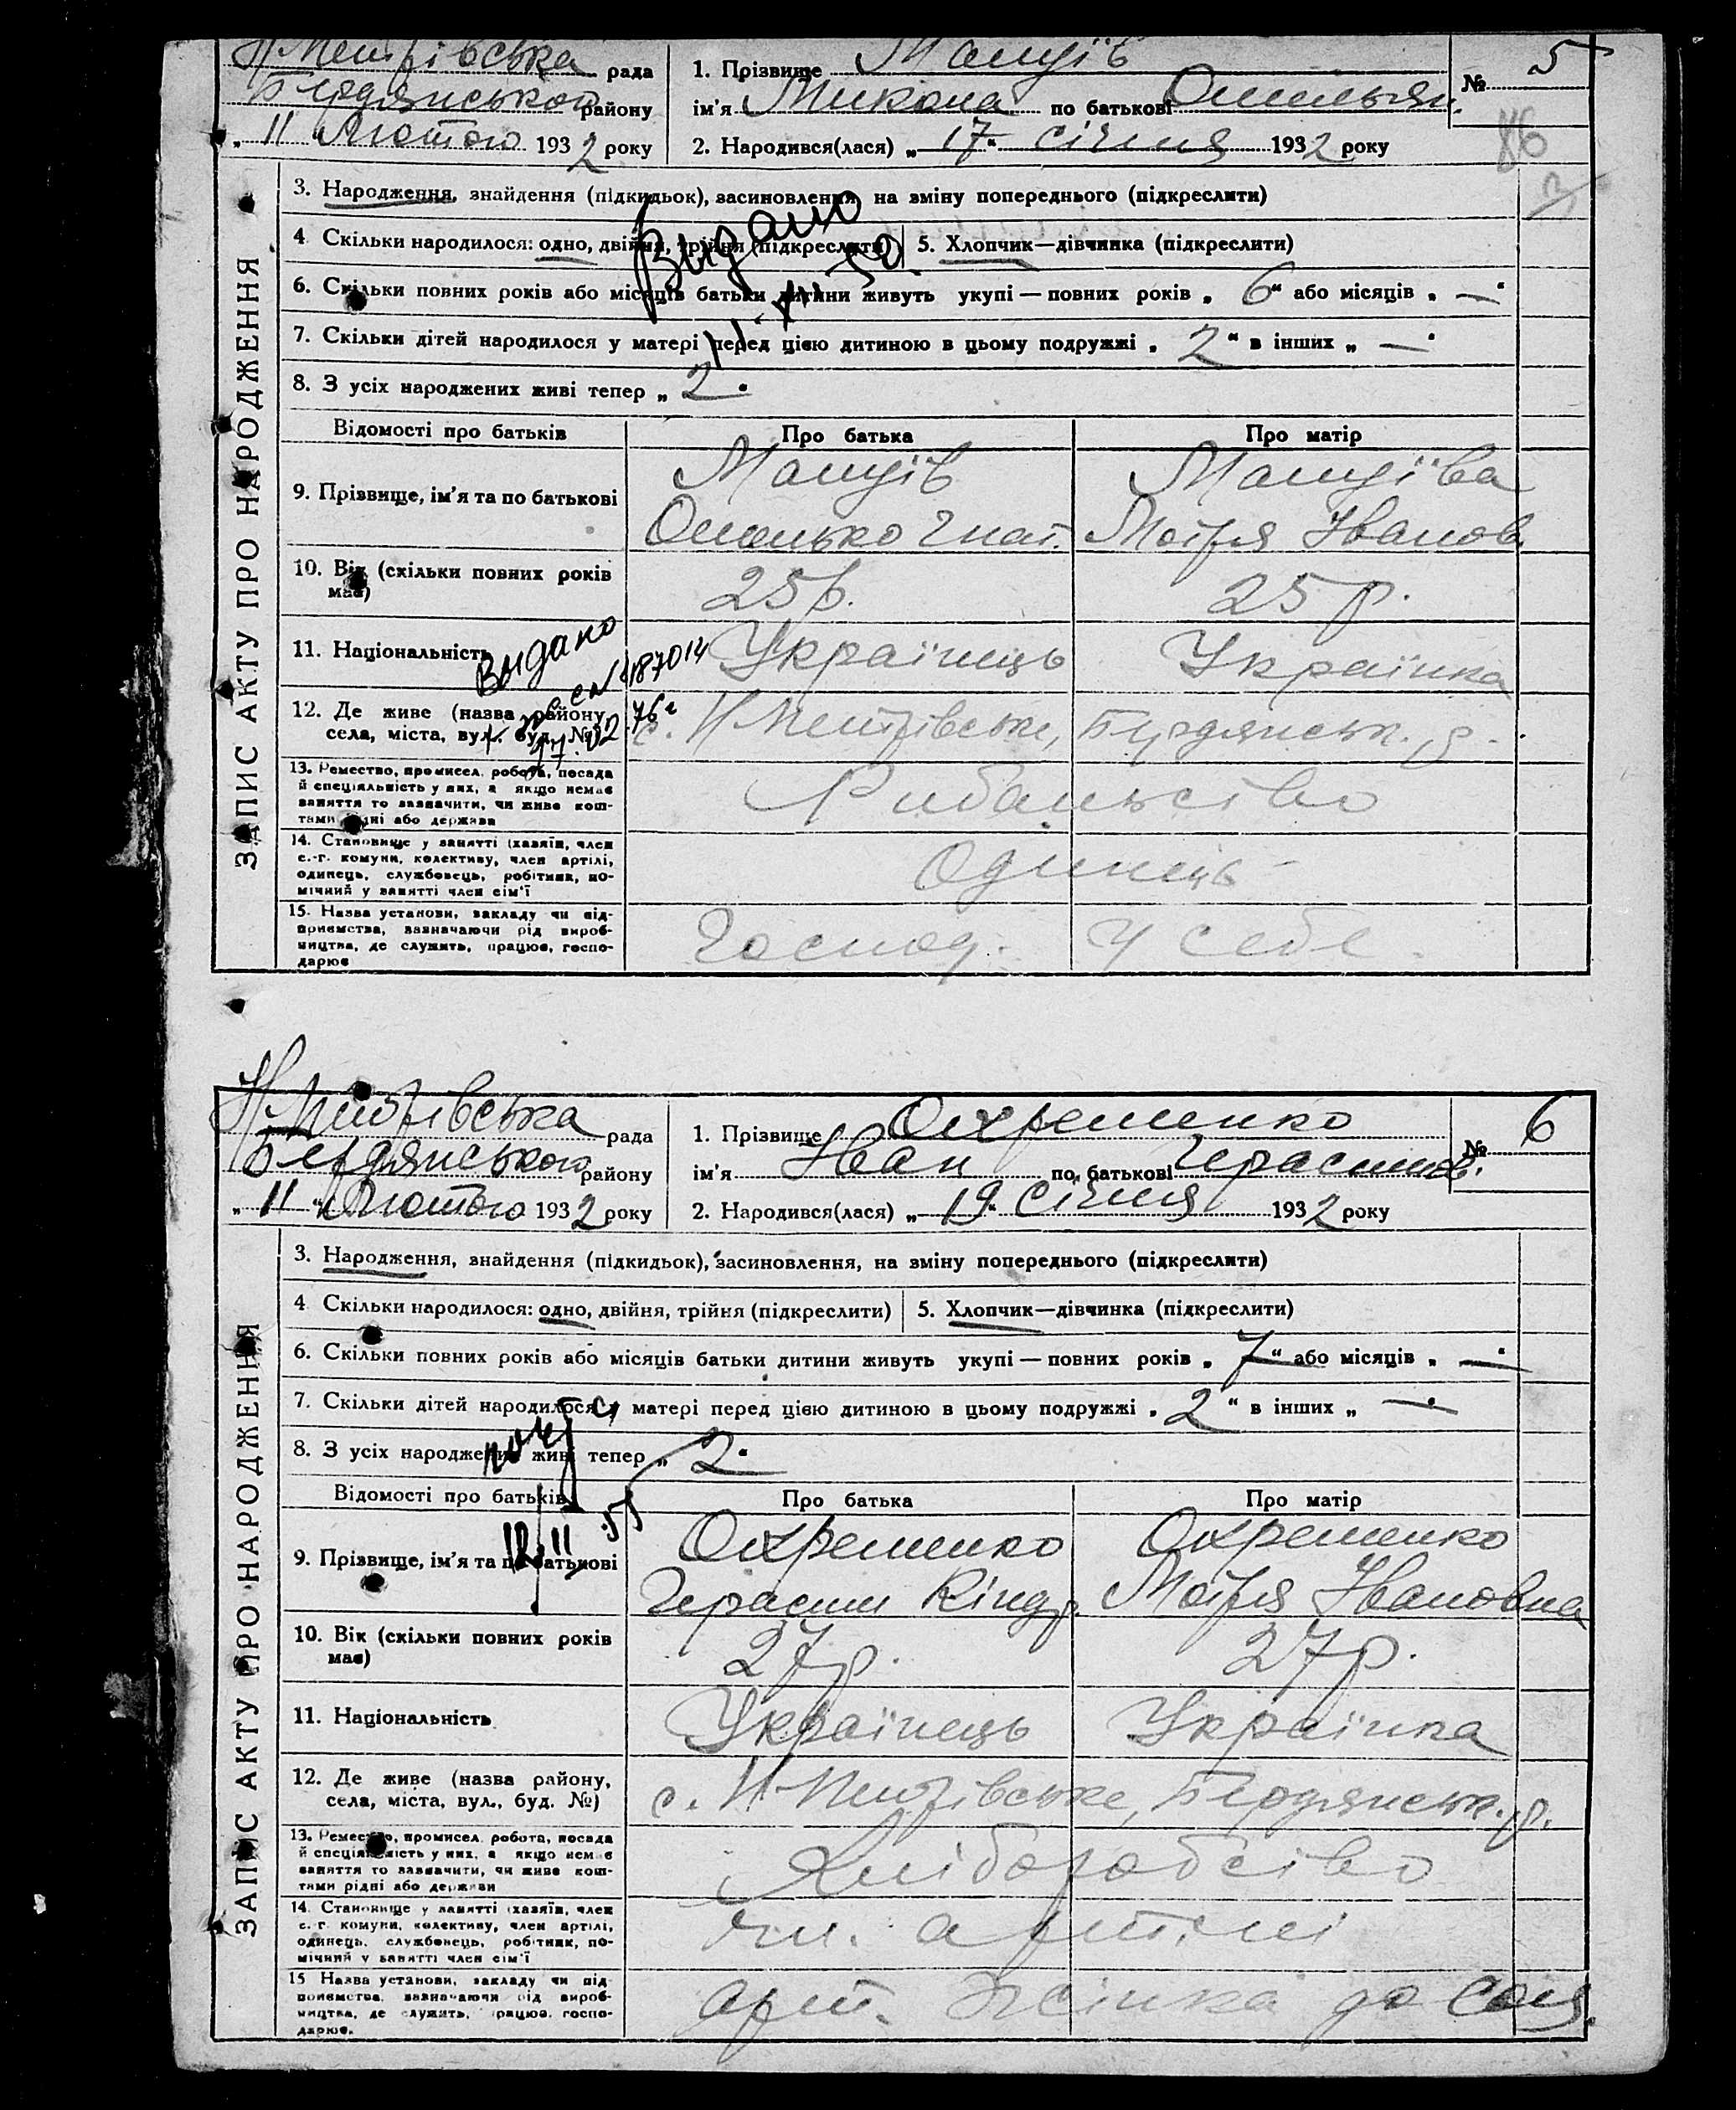 Н Петрівська рада
Бердянського району
„ 11 “ Лютого 1932 року
1. Прізвище Мацуїв
ім'я Микола по батькові Омельян.
№ 5
2. Народився(лася) „ 17 “ січня 1932 року
86
ЗАПИС АКТУ ПРО НАРОДЖЕННЯ
3. Народження, знайдення (підкидьок), засиновлення, на зміну попереднього (підкреслити)
4. Скільки народилося: одно, двійня, трійня (підкреслити)
5. Хлопчик—дівчинка (підкреслити)
Видано
6. Скільки повних років або місяців батьки дитини живуть укупі — повних років „ 6 “ або місяців „ — “
7. Скільки дітей народилося у матері перед цією дитиною в цьому подружжі „ 2 “ в інших „ — “
8. З усіх народжених живі тепер „ 2 “
Відомості про батьків Про батька Про матір
9. Прізвище, ім'я та по батькові
Мацуїв Мацуїва
Омелько Гнат. Мотря Іванов.
10. Вік (скільки повних років має) 25 р. 25 р.
11. Національність Українець Українка
Выдано
187014
12. Де живе (назва району, села, міста, вул., буд. №) с. Н Петрівське, Бердянськ. р.
13. Ремество, промисел, робота, посада й спеціяльність у них, а якщо немає заняття то зазначити, чи живе коштами рідні або держави
Рибальство
14. Становище у занятті (хазяїн, член с.-г. комуни, колективу, член артілі, одинець, службовець, робітник, помічний у занятті член сім'ї
Одинець
15. Назва установи, закладу чи підприємства, зазначаючи рід виробництва, де служить, працює, господарює
Господ. у себе.
Н Петрівська рада
Бердянського району
„ 11 “ Лютого 1932 року
1. Прізвище Охременко
ім'я Іван по батькові Герасимов.
№ 6
2. Народився(лася) „ 19 “ Січня 1932 року
ЗАПИС АКТУ ПРО НАРОДЖЕННЯ
3. Народження, знайдення (підкидьок), засиновлення, на зміну попереднього (підкреслити)
4. Скільки народилося: одно, двійня, трійня (підкреслити)
5. Хлопчик—дівчинка (підкреслити)
6. Скільки повних років або місяців батьки дитини живуть укупі — повних років „ 7 “ або місяців „ — “
7. Скільки дітей народилося у матері перед цією дитиною в цьому подружжі „ 2 “ в інших „ — “
8. З усіх народжених живі тепер „ 2 “
Відомості про батьків Про батька Про матір
9. Прізвище, ім'я та по батькові
Охременко Охременко
Герасим Кіндр. Мотря Івановна
10. Вік (скільки повних років має) 27 р. 27 р.
11. Національність Українець Українка
12. Де живе (назва району, села, міста, вул., буд. №) с. Н-Петрівське, Бердянськ. р.
13. Ремество, промисел, робота, посада й спеціяльність у них, а якщо немає заняття то зазначити, чи живе коштами рідні або держави
Хліборобство
14. Становище у занятті (хазяїн, член с.-г. комуни, колективу, член артілі, одинець, службовець, робітник, помічний у занятті член сім'ї
Чл. артілі
15. Назва установи, закладу чи підприємства, зазначаючи рід виробництва, де служить, працює, господарює.
арт. до Соц.